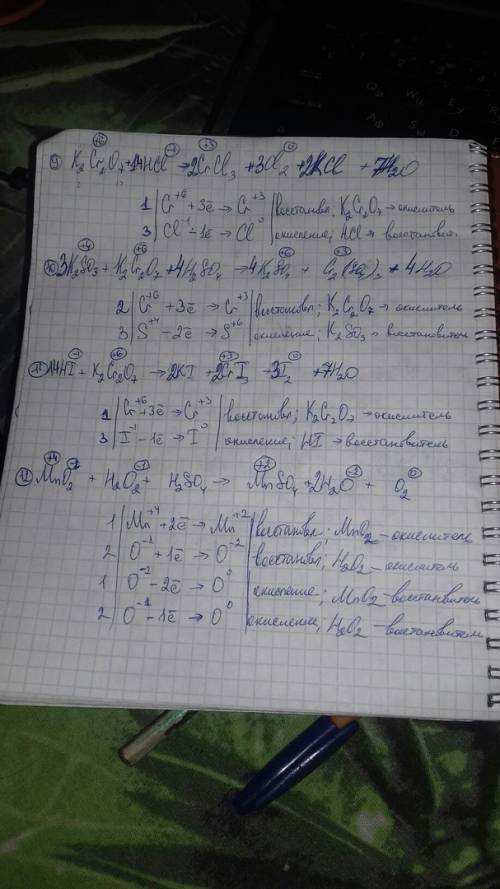 9) K₂Cr₂⁺⁶O₇ + 14HCl⁻¹ → 2Cr⁺³Cl₃ + 3Cl₂⁰ + 2KCl + 7H₂O
1 | Cr⁺⁶ + 3ē → Cr⁺³ | восстановл; K₂Cr₂O₇ → окислитель
3 | Cl⁻¹ - 1ē → Cl⁰ | окисление; HCl → восстановит.
10) 3K₂S⁺⁴O₃ + K₂Cr₂⁺⁶O₇ + 4H₂SO₄ → 4K₂S⁺⁶O₄ + Cr₂⁺³(SO₄)₃ + 4H₂O
2 | Cr⁺⁶ + 3ē → Cr⁺³ | восстановл; K₂Cr₂O₇ → окислитель
3 | S⁺⁴ - 2ē → S⁺⁶ | окисление; K₂SO₃ → восстановитель
11) 14HI⁻¹ + K₂Cr₂⁺⁶O₇ → 2KI + 2Cr⁺³I₃ + 3I₂⁰ + 7H₂O
1 | Cr⁺⁶ + 3ē → Cr⁺³ | восстановл; K₂Cr₂O₇ → окислитель
3 | I⁻¹ - 1ē → I⁰ | окисление; HI → восстановитель
12) Mn⁺⁴O₂ + H₂O₂⁻¹ + H₂SO₄ → Mn⁺²SO₄ + 2H₂O + O₂⁰
1 | Mn⁺⁴ + 2ē → Mn⁺² | восстановл; MnO₂ - окислитель
2 | O⁻¹ + 1ē → O⁻² | восстановл; H₂O₂ - окислитель
1 | O⁻² - 2ē → O⁰ | окисление; MnO₂ - восстановитель
2 | O⁻¹ - 1ē → O⁰ | окисление; H₂O₂ - восстановитель